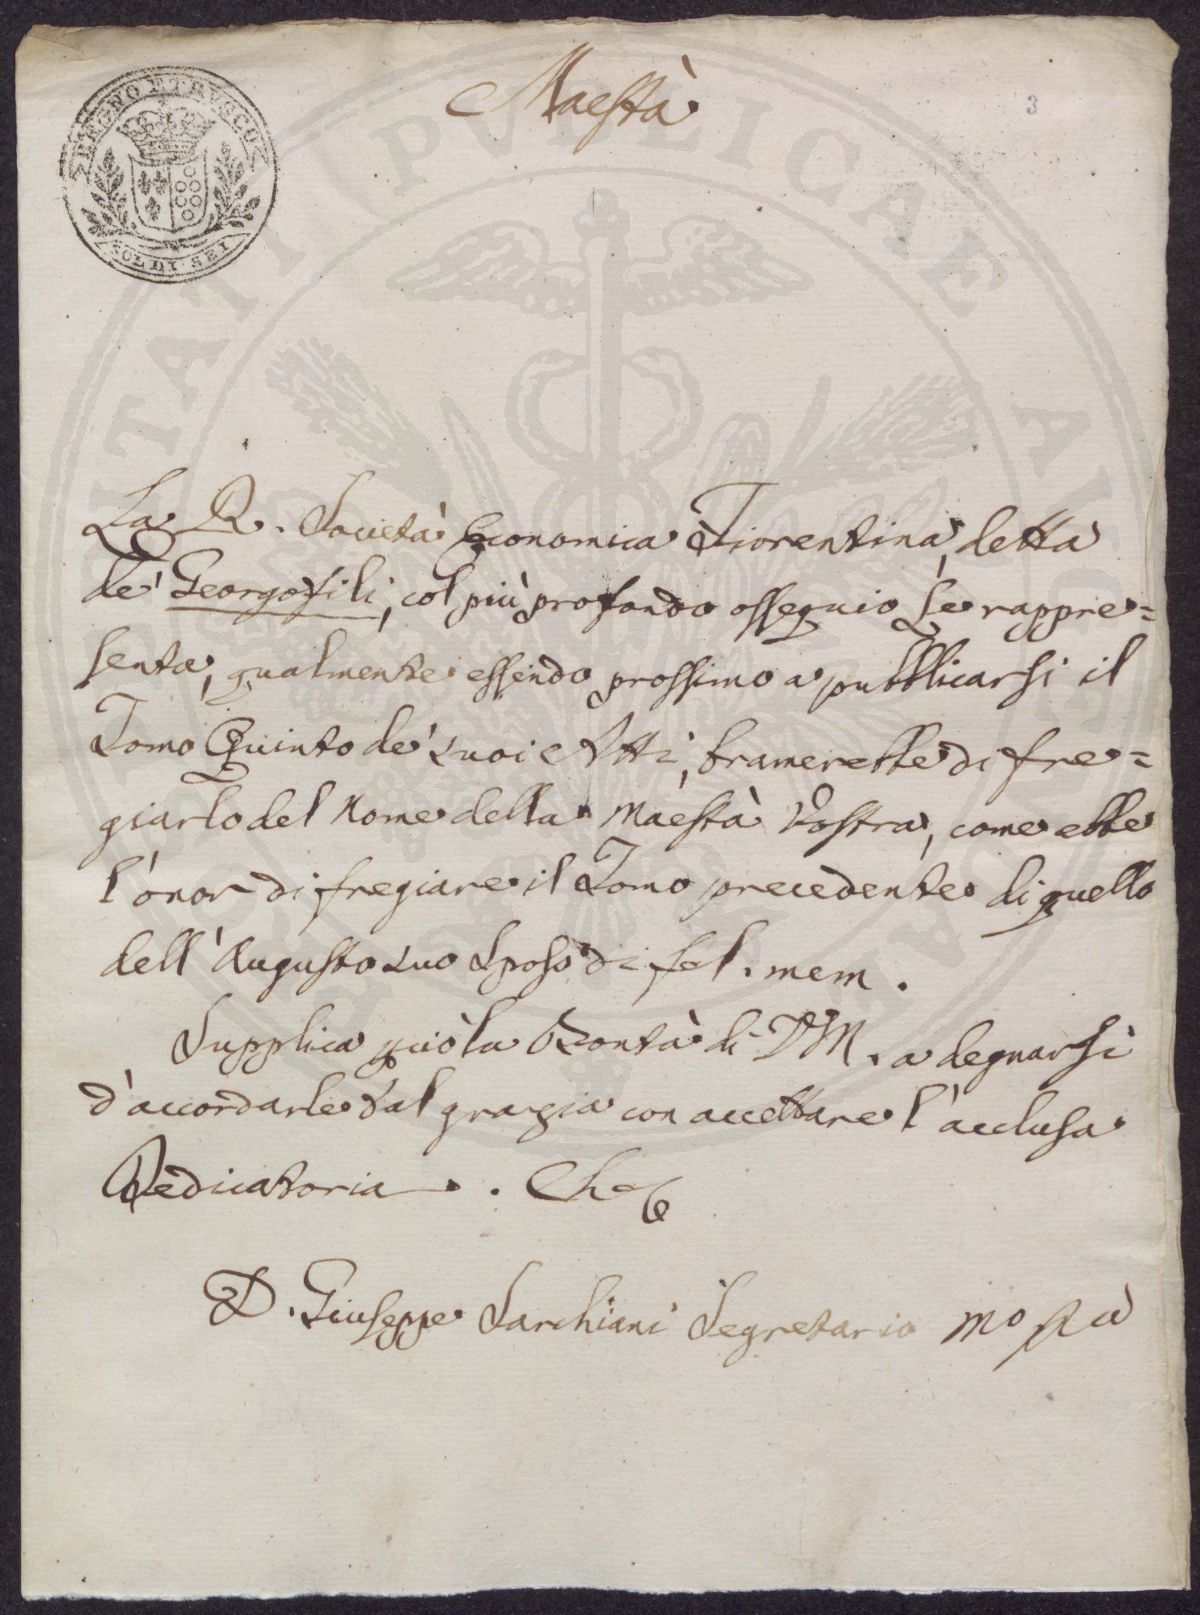 Maestà
3
REGNO ETRUSCO
SOLDI SEI
PROSPERITATI PUBLICAE AUGENDAE
La R. Società Economica Fiorentina, detta
de' Georgofili, col più profondo ossequio Le rappre=
senta, qualmente essendo prossimo a pubblicarsi il
Tomo Quinto de' suoi Atti, bramerebbe di fre=
giarlo del Nome della Maestà Vostra, come ebbe
l'onor di fregiare il Tomo precedente di quello
dell'Augusto suo Sposo di fel. mem.
Supplica perciò la Bontà di V. M. a degnarsi
d'accordarle tal grazia con accettare l'acclusa
Dedicatoria. Che
D. Giuseppe Sarchiani Segretario mo pa